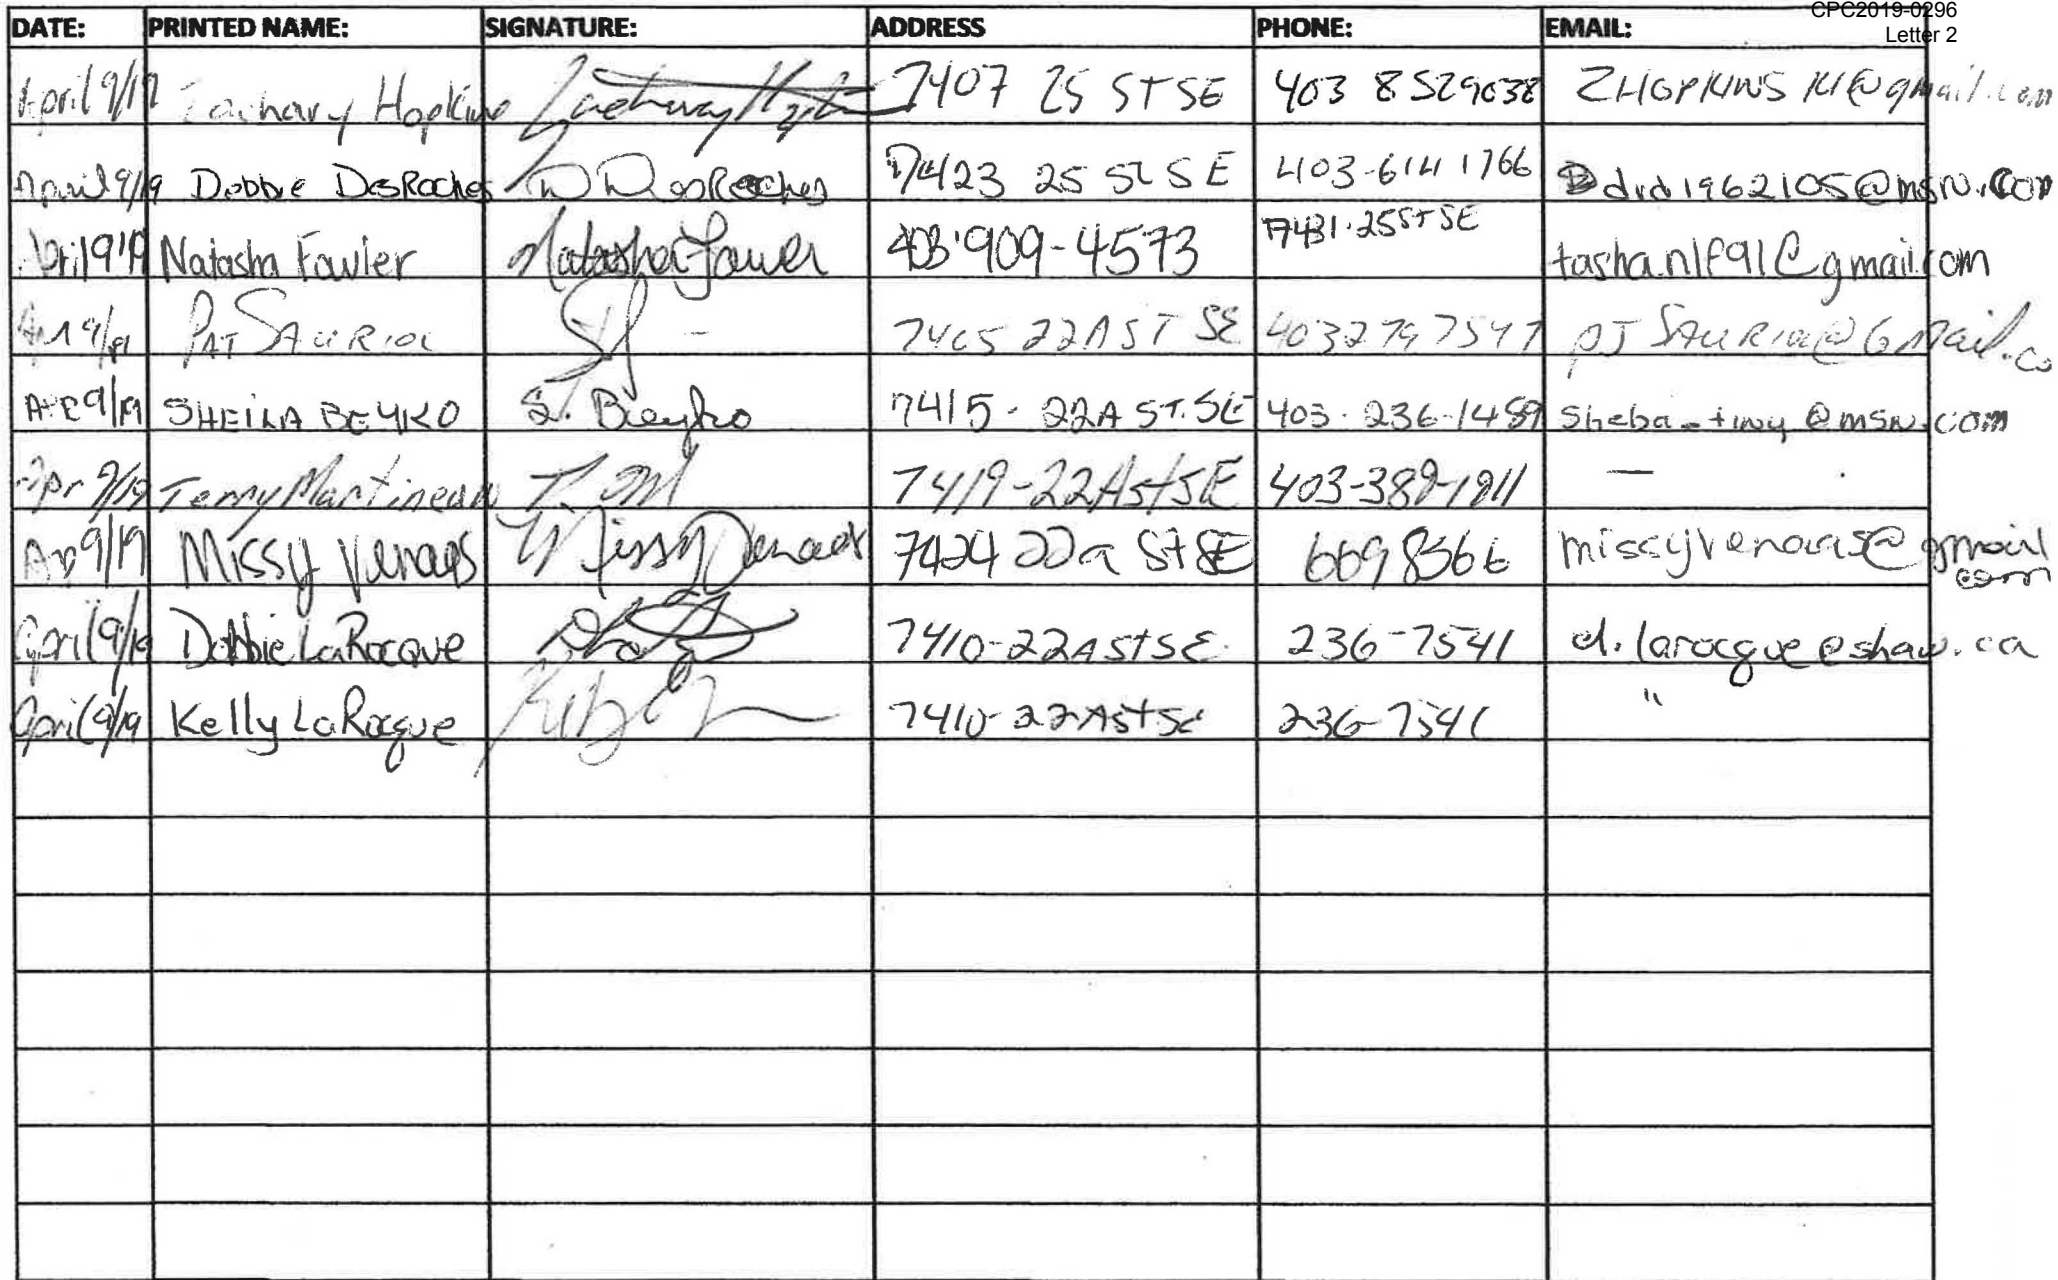 CPC2019-0296
Letter 2
DATE: PRINTED NAME: SIGNATURE: ADDRESS PHONE: EMAIL:
April 9/19 Zachary Hopkins 7407 25 ST SE 403 8529038 @gmail.com
April 9/19 Debbie DesRoches D DesRoches 7423 25 St SE 403-614 1766 drd1962105@msn.com
April 9'19 Natasha Fowler Natasha Fowler 403 909-4573 7431.25ST SE tasha.nlf91@gmail.com
9/19 PAT SAURIOL 7405 22A ST SE 403279 7547 PJSAURIOL@Gmail.co
9/19 SHEILA BEYKO S. Beyko 7415 - 22A ST. SE 403-236-1489 @msn.com
Apr 9/19 Terry Martineau 7419-22A St SE —
Ap 9/19 Missy Venaas Missy Venaas 7424 22a St SE 669 8366 missyvenaas@gmail
com
April 9/19 Debbie LaRocque 7410-22A St SE. 236-7541 d.larocque@shaw.ca
April 9/19 Kelly LaRocque 7410-22A St SE 236-7541 "